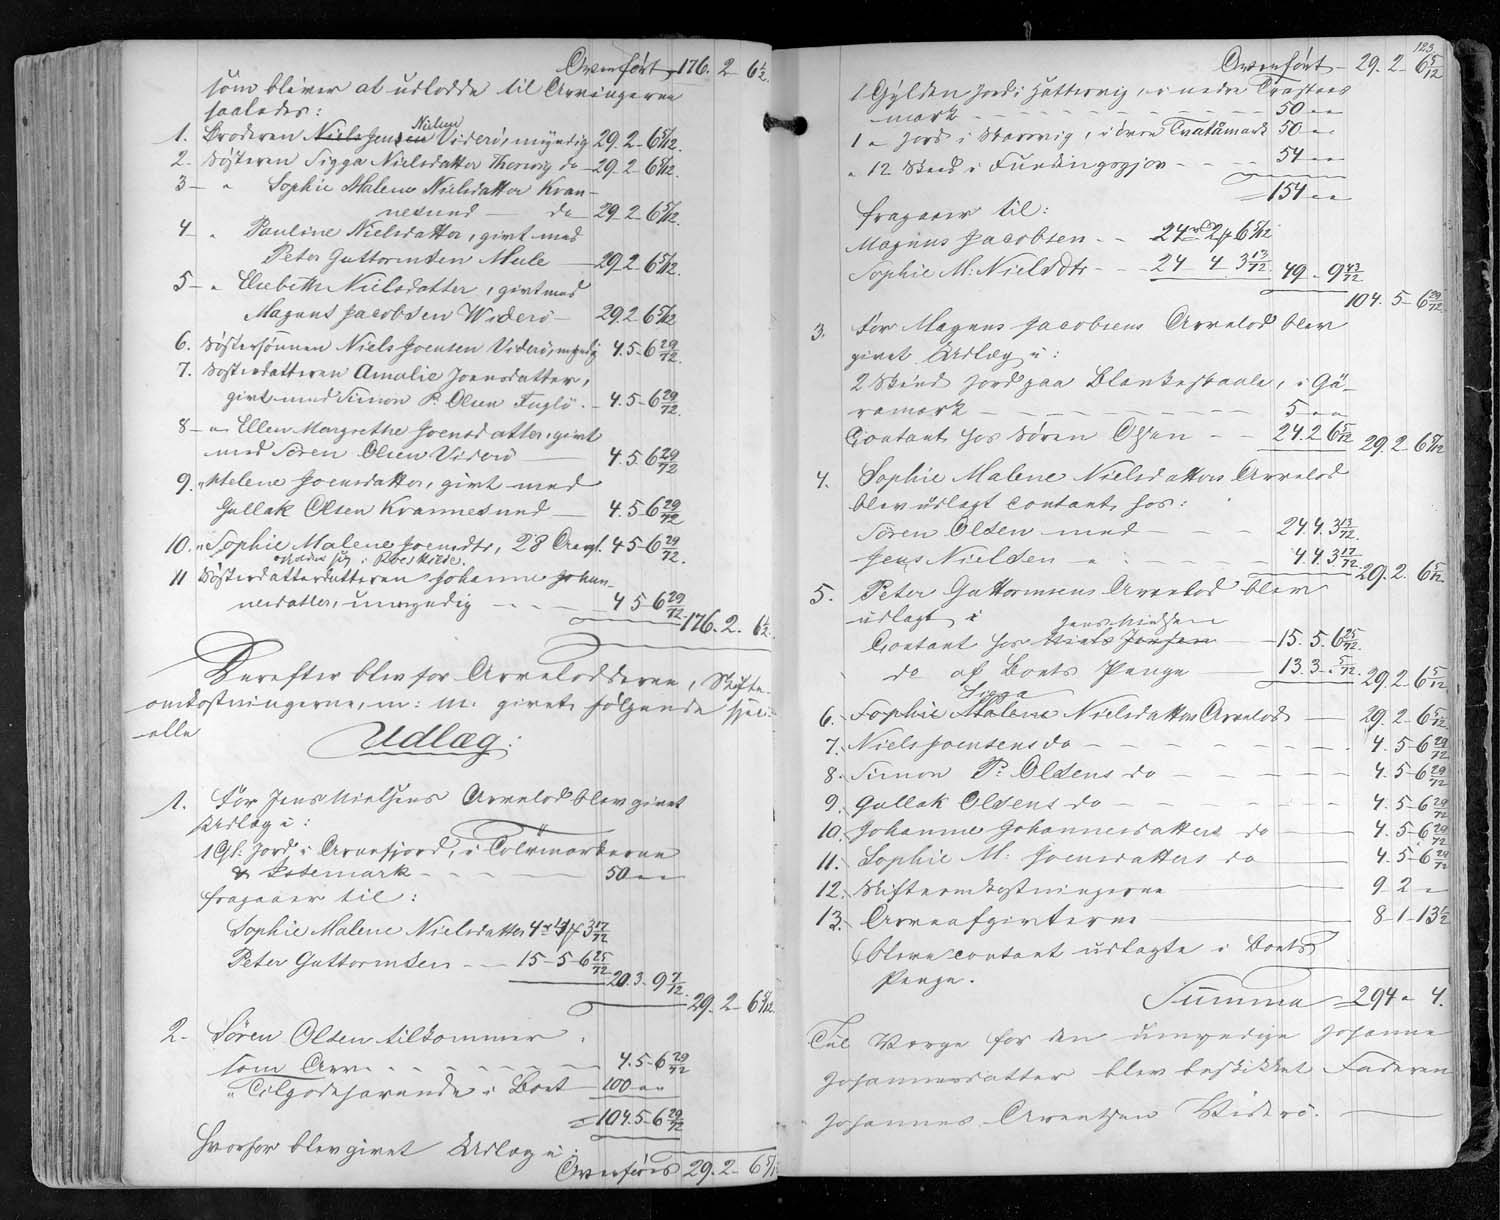 Overført 176. 2 6½
som bliver at udlodde til Arvingerne
saaledes:
Nielsen
1. Broderen Niels Jensen Viderö, myndig 29. 2 6 5/12.
2. Søsteren Sigga Nielsdatter do 29. 2 6 5/12.
3 " Sophie Malene Nielsdatter Kvan-
nesund — do 29. 2 6 5/12.
4 " Pauline Nielsdatter, givt med
Peter Guttormsen Mule 29. 2 6 5/12.
5 " Elsebeth Nielsdatter, givt med
Magnus Jacobsen Viderö 29. 2 6 5/12
6. Søstersønnen Niels Joensen Viderö, myndig 4. 5 6 29/72.
7. Søsterdatteren Amalie Joensdatter,
givt med Simon P. Olsen Fuglö 4. 5 6 29/72.
8 " Ellen Margrethe Joensdatter, givt
med Sören Olsen Viderö 4. 5 6 29/72
9. " Helene Joensdatter, givt med
Gullak Olsen Kvannesund 4. 5 6 29/72
10. " Sophie Malene Joensdtr, 28 Aar gl. 4 5 6 29/72.
opholder sig i Roeskilde.
11 Søsterdatterdatteren Johanne Johan-
nesdatter, umyndig 4 5 6 29/72
176. 2. 6½.
Derefter blev for Arvelodderne, Skifte-
omkostningerne, m: m. givet følgende speci-
elle
Udlæg:
1. For Jens Nielsens Arvelod blev givet
Udlæg i:
1 Gl. Jord i Arnefjord, i
& 50 " "
fragaaer til:
Sophie Malene Nielsdatter 4 rd 4 3 17/72
Peter Guttormsen 15 5 6 25/72
20. 3 9 7/12
29. 2 6 5/12.
2. Sören Olsen tilkommer
som Arv 4. 5 6 29/72
" Tilgodehavende i Boet 100 " "
104. 5 6 29/72
hvorfor blev givet Udlæg i:
Overføres 29. 2 6 5/12
123
Overført 29. 2 6 5/12
1 Gylden Jord i Hattervig, i nedre
mark 50 " "
1 " Jord i Skarvig, i övre Tvatåmark 50 " "
" 12 Skind i Fundingsgjov 54 " "
154 " "
fragaaer til:
Magnus Jacobsen 24 rd 2 6 5/12
Sophie M. Nielsdtr 24 4 3 13/72
49 " 9 43/72
104. 5 6 29/72
3. For Magnus Jacobsens Arvelod blev
givet Udlæg i:
2 Skind Jord paa Blankeskaale, i Gå-
ramark 5 " "
Contant hos Sören Olsen 24. 2 6 5/12
29. 2 6 5/12
4. Sophie Malene Nielsdatters Arvelod
blev udlagt contant hos:
Sören Olsen med 24. 4. 3 13/72
Jens Nielsen " 4. 4. 3 17/72
29. 2. 6 5/12
5. Peter Guttormsens Arvelod blev
udlagt i
Jens Nielsen
Contant hos Niels Jensen 15. 5. 6 25/72
do af Boets Penge 13. 3. " 5/72
29. 2 6 5/12
Sigga
6. Sophie Malene Nielsdatters Arvelod 29. 2 6 5/12
7. Niels Joensens do 4. 5 6 29/72
8. Simon P. Olsens do 4. 5 6 29/72
9. Gullak Olsens do 4. 5 6 29/72
10. Johanne Johannesdatters do 4. 5 6 29/72
11. Sophie M. Joensdatters do 4. 5 6 29/72
12. Skifteomkostningerne 9 2 "
13. Arveafgivterne 8 1 13½
bleve contant udlagte i Boets
Penge.
Summa 294 " 4.
Til Værge for den umyndige Johanne
Johannesdatter blev beskikket Faderen
Johannes Arentsen Viderö.